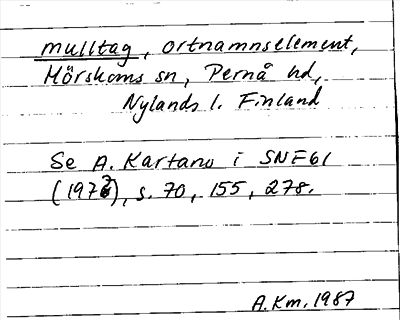 mulltag, ortnamnselement,
Mörskoms sn, Pernå hd,
Nylands l. Finland
Se A. Kartano i SNF61
(1973), s. 70, 155, 278.
A.Km. 1987